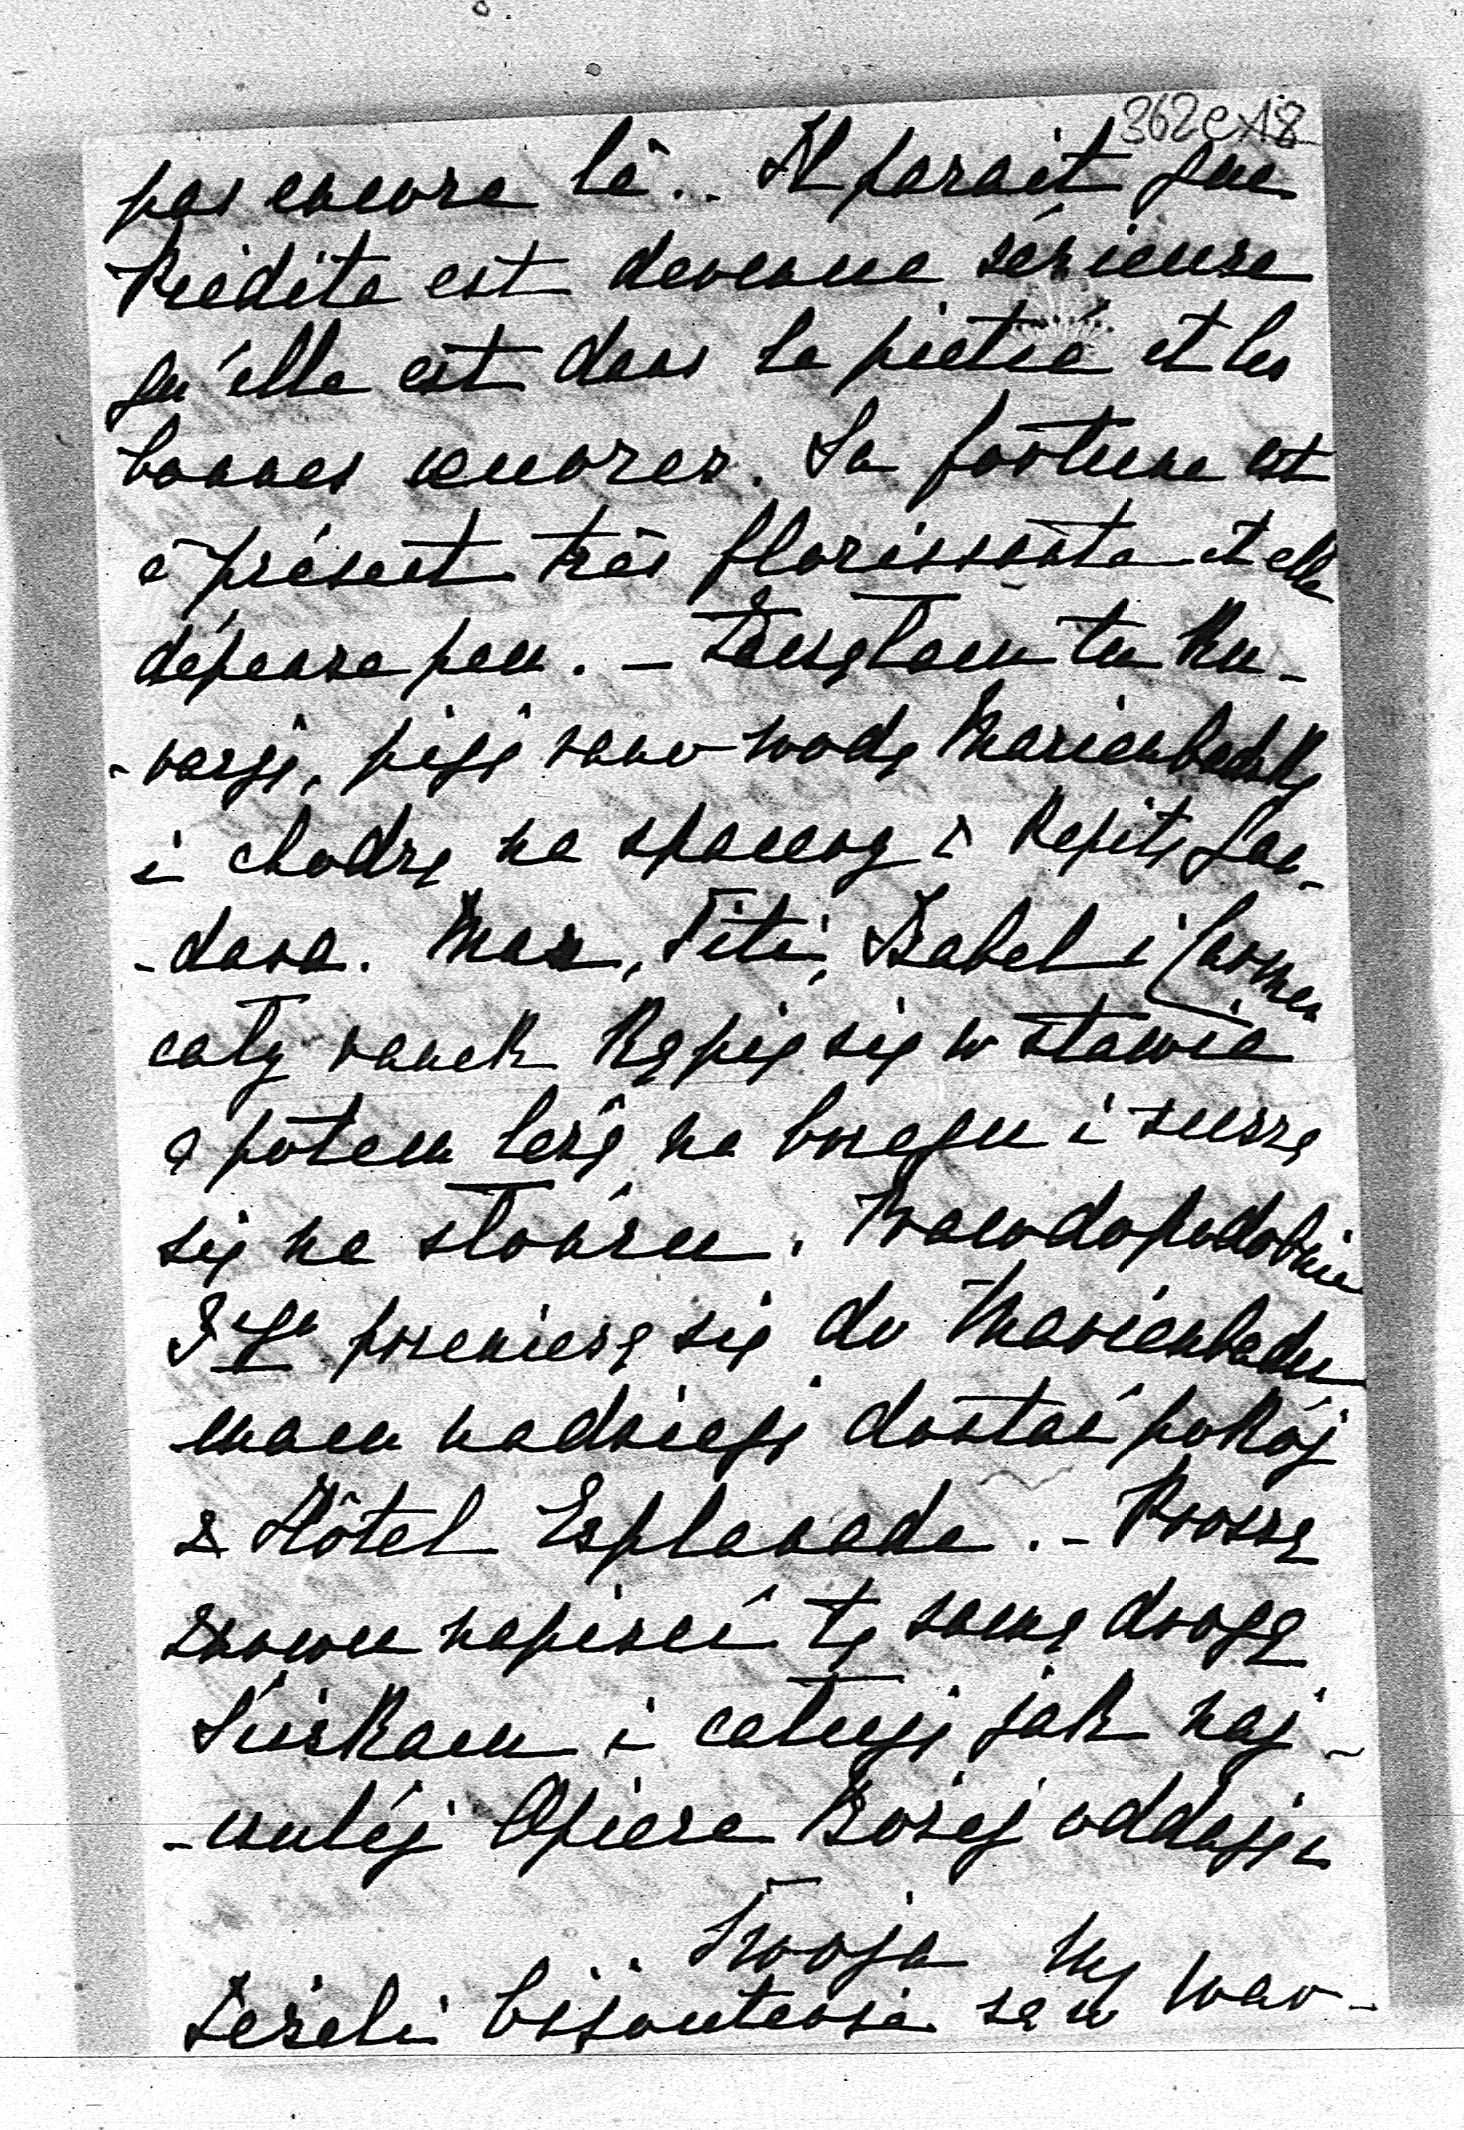 362ex18
pas encore là.. Il parait que
est devenue sérieuse
qu'elle est dans la pietié et les
bonnes œuvres. Sa fortune est
à présent très florissante et elle
dépense peu. – tu Ku-
-racją, piję rano wodę Marienbadzką
i chodzę na spacery z Pepitą Gan-
-dara. Max, Fiti, Izabel i Carmen
cały ranek kąpią się w stawie
a potem leżą na brzegu i suszą
się na słońcu. Prawdopodobnie
37go przeniosę się do Marienbadu
mam nadzieję dostać pokój
z Hôtel Esplanade. – Proszę
znowu napisać tą samą drogą
Ściskam i całuję jak naj-
-czulej Opiece Bożej oddając
Twoja
Jeżeli bijouteria są w War-